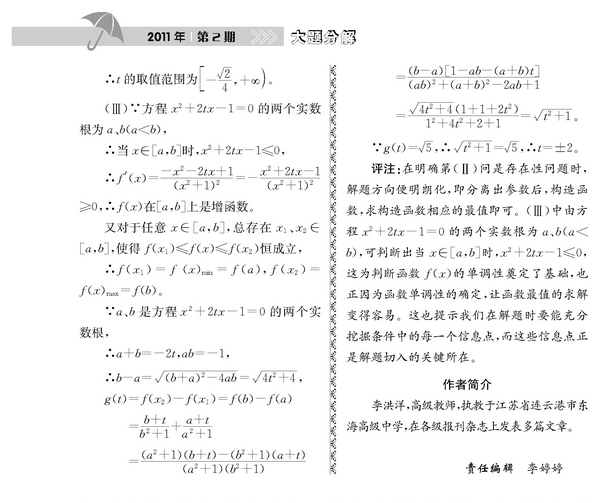 2011年 第2期 大题分解
∴t的取值范围为[-√2/4,+∞)。
(Ⅲ)∵方程 x²+2tx-1=0 的两个实数
根为 a、b(a<b),
∴当 x∈[a,b]时,x²+2tx-1≤0,
∴f′(x)=(-x²-2tx+1)/(x²+1)²=-(x²+2tx-1)/(x²+1)²
≥0,∴f(x)在[a,b]上是增函数。
又对于任意 x∈[a,b],总存在 x₁、x₂∈
[a,b],使得 f(x₁)≤f(x)≤f(x₂)恒成立,
∴f(x₁)=f(x)min=f(a),f(x₂)=
f(x)max=f(b)。
∵a、b 是方程 x²+2tx-1=0 的两个实
数根,
∴a+b=-2t,ab=-1,
∴b-a=√((b+a)²-4ab)=√(4t²+4),
g(t)=f(x₂)-f(x₁)=f(b)-f(a)
=(b+t)/(b²+1)+(a+t)/(a²+1)
=((a²+1)(b+t)-(b²+1)(a+t))/((a²+1)(b²+1))
=((b-a)[1-ab-(a+b)t])/((ab)²+(a+b)²-2ab+1)
=(√(4t²+4)(1+1+2t²))/(1²+4t²+2+1)=√(t²+1)。
∵g(t)=√5,∴√(t²+1)=√5,∴t=±2。
评注:在明确第(Ⅱ)问是存在性问题时,
解题方向便明朗化,即分离出参数后,构造函
数,求构造函数相应的最值即可。(Ⅲ)中由方
程 x²+2tx-1=0 的两个实数根为 a、b(a<
b),可判断出当 x∈[a,b]时,x²+2tx-1≤0,
这为判断函数 f(x)的单调性奠定了基础,也
正因为函数单调性的确定,让函数最值的求解
变得容易。这也提示我们在解题时要能充分
挖掘条件中的每一个信息点,而这些信息点正
是解题切入的关键所在。
作者简介
李洪洋,高级教师,执教于江苏省连云港市东
海高级中学,在各级报刊杂志上发表多篇文章。
责任编辑 李婷婷